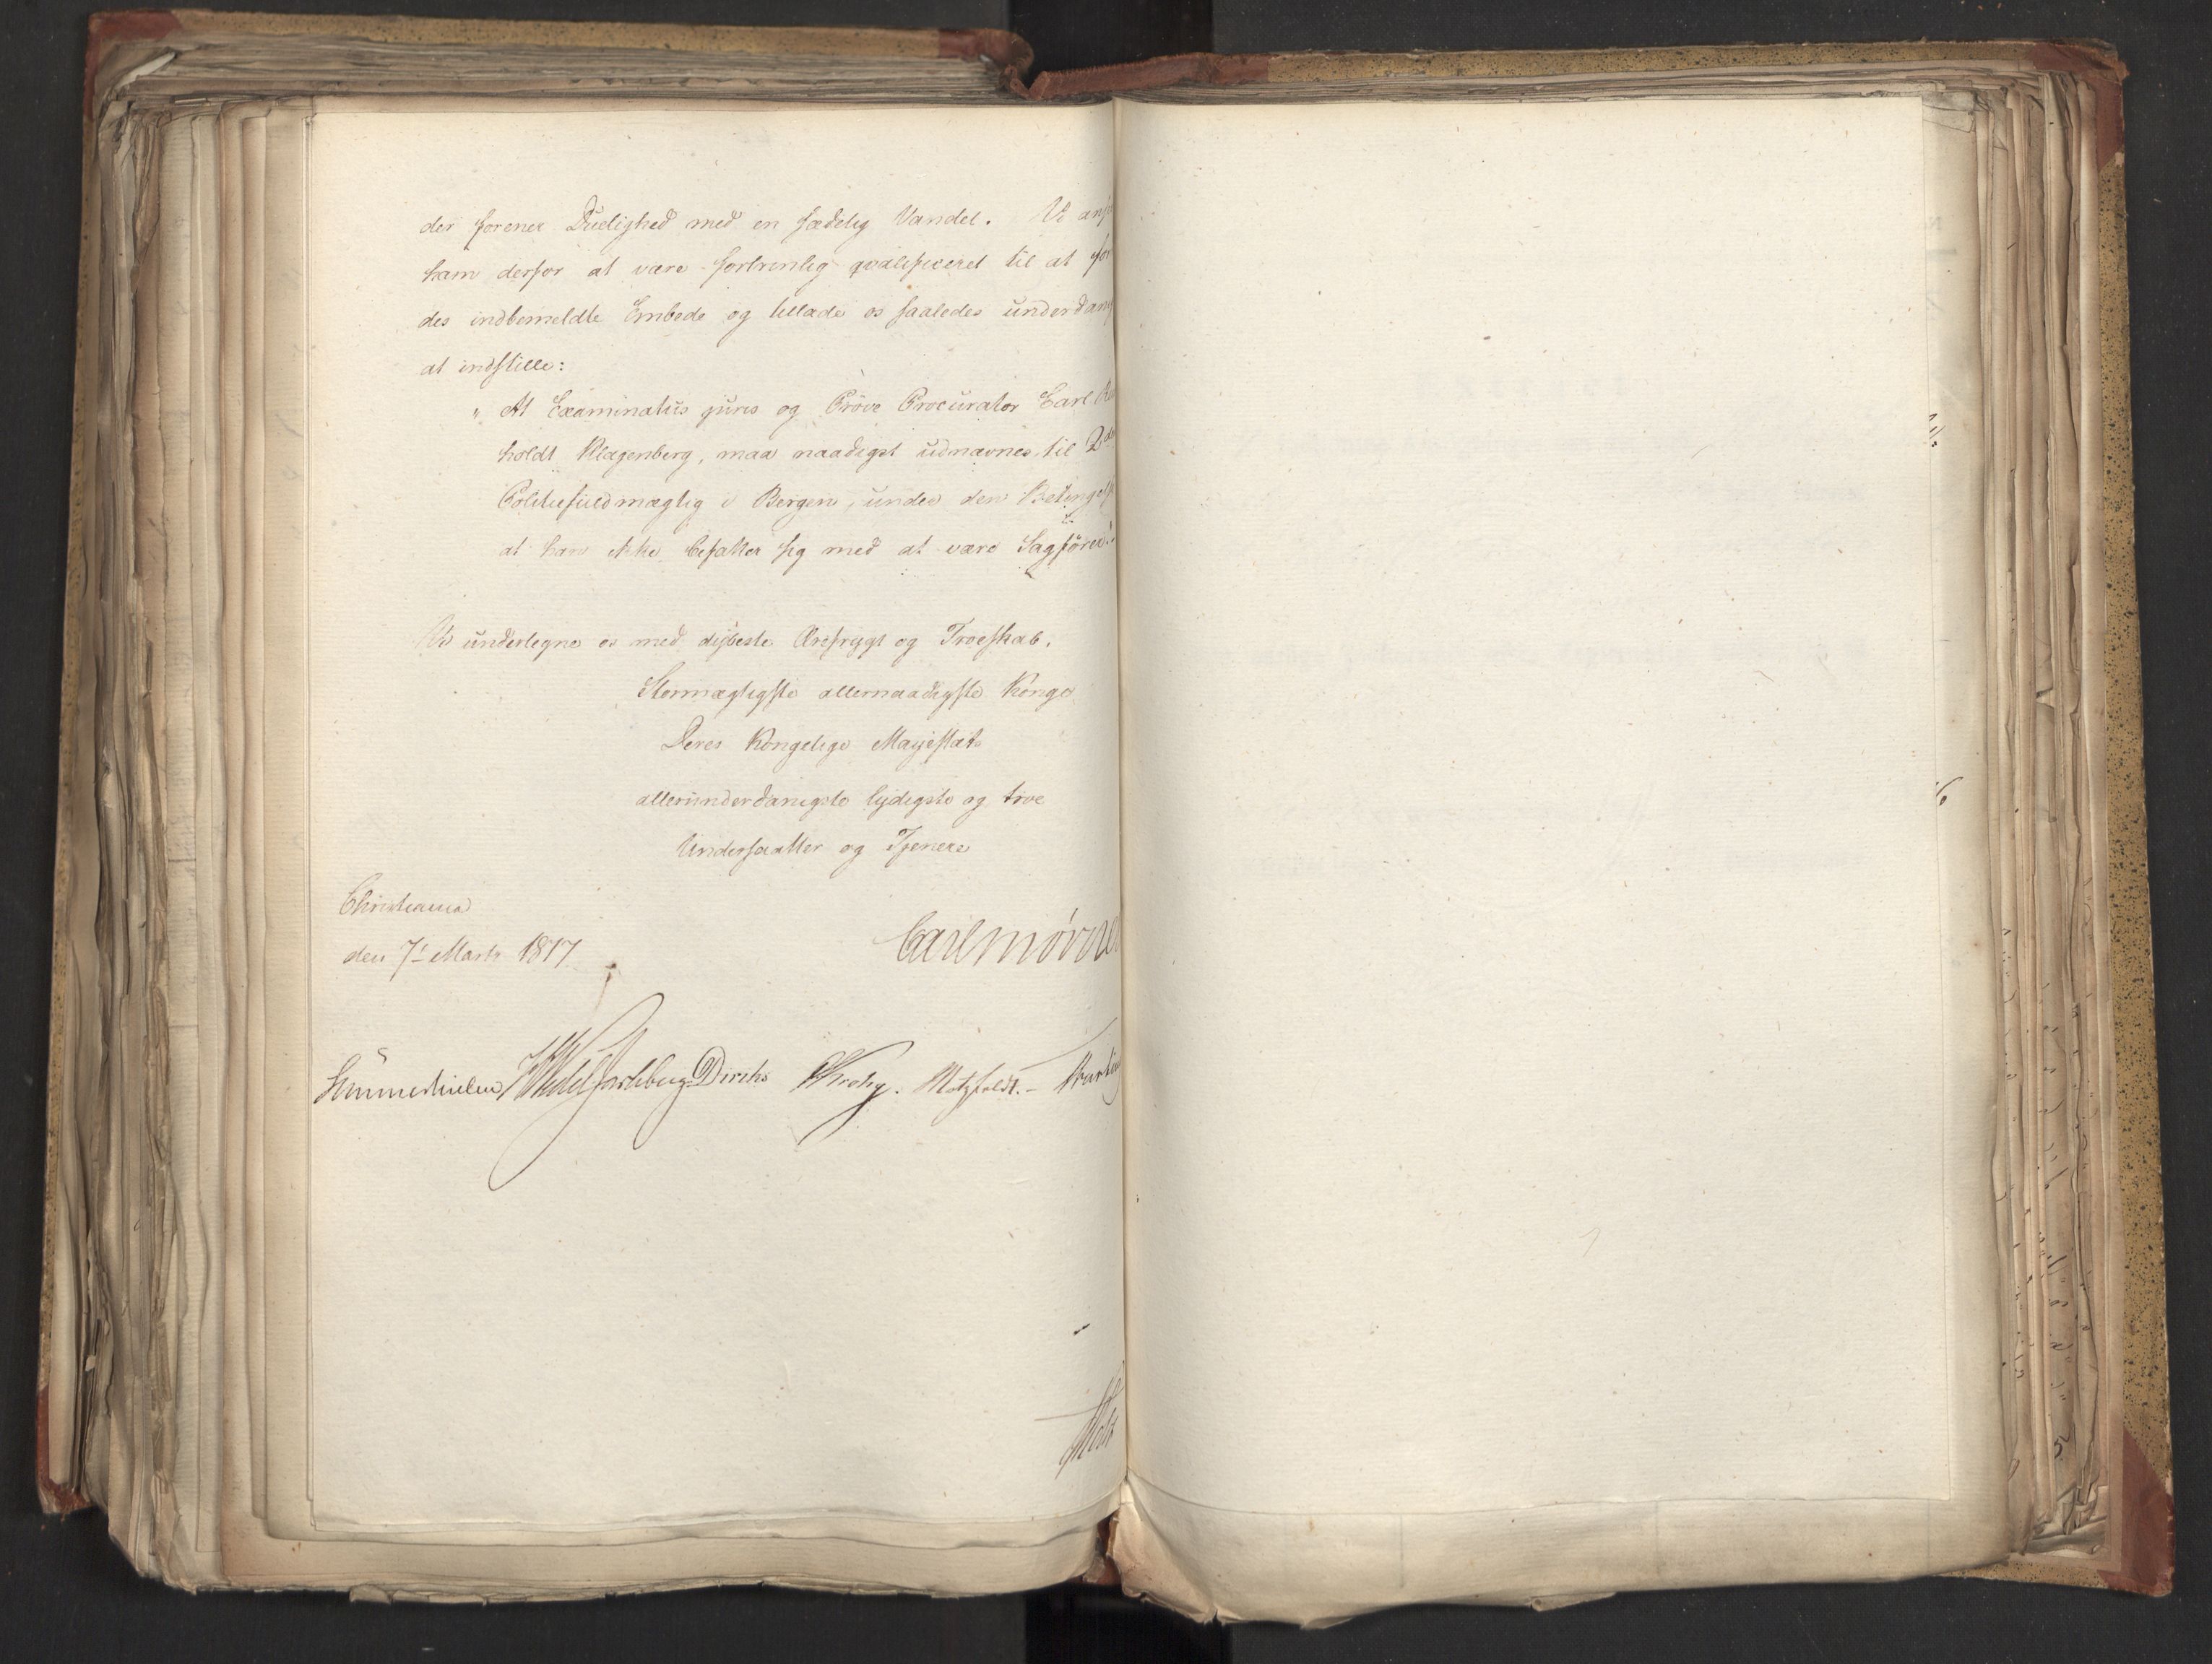 der forener Duelighed med en sædelig Vandel. Vi
ham derfor at være fortrinlig qvalificeret til at
des indbemeldte Embede og tillade os saaledes underdan
at indstille:
" At Examinatus juris og Prøve Procurator Carl
holdt Klagenberg, maa naadigst udnævnes til 2den
Politiefuldmægtig i Bergen, under den Betingels
at han ikke befatter sig med at være Sagfører"
Vi undertegne os med dybeste Ærefrygt og Troeskab.
Stormægtigste allernaadigste Konge
Deres Kongelige Majestæts
allerunderdanigste lydigste og troe
Undersaatter og Tjenere
Christiania
den 7de Marts 1817
Carl Mörner
Sommerhielm Wedel Jarlsberg Diriks Krohg. Motzfeldt.-
Holst